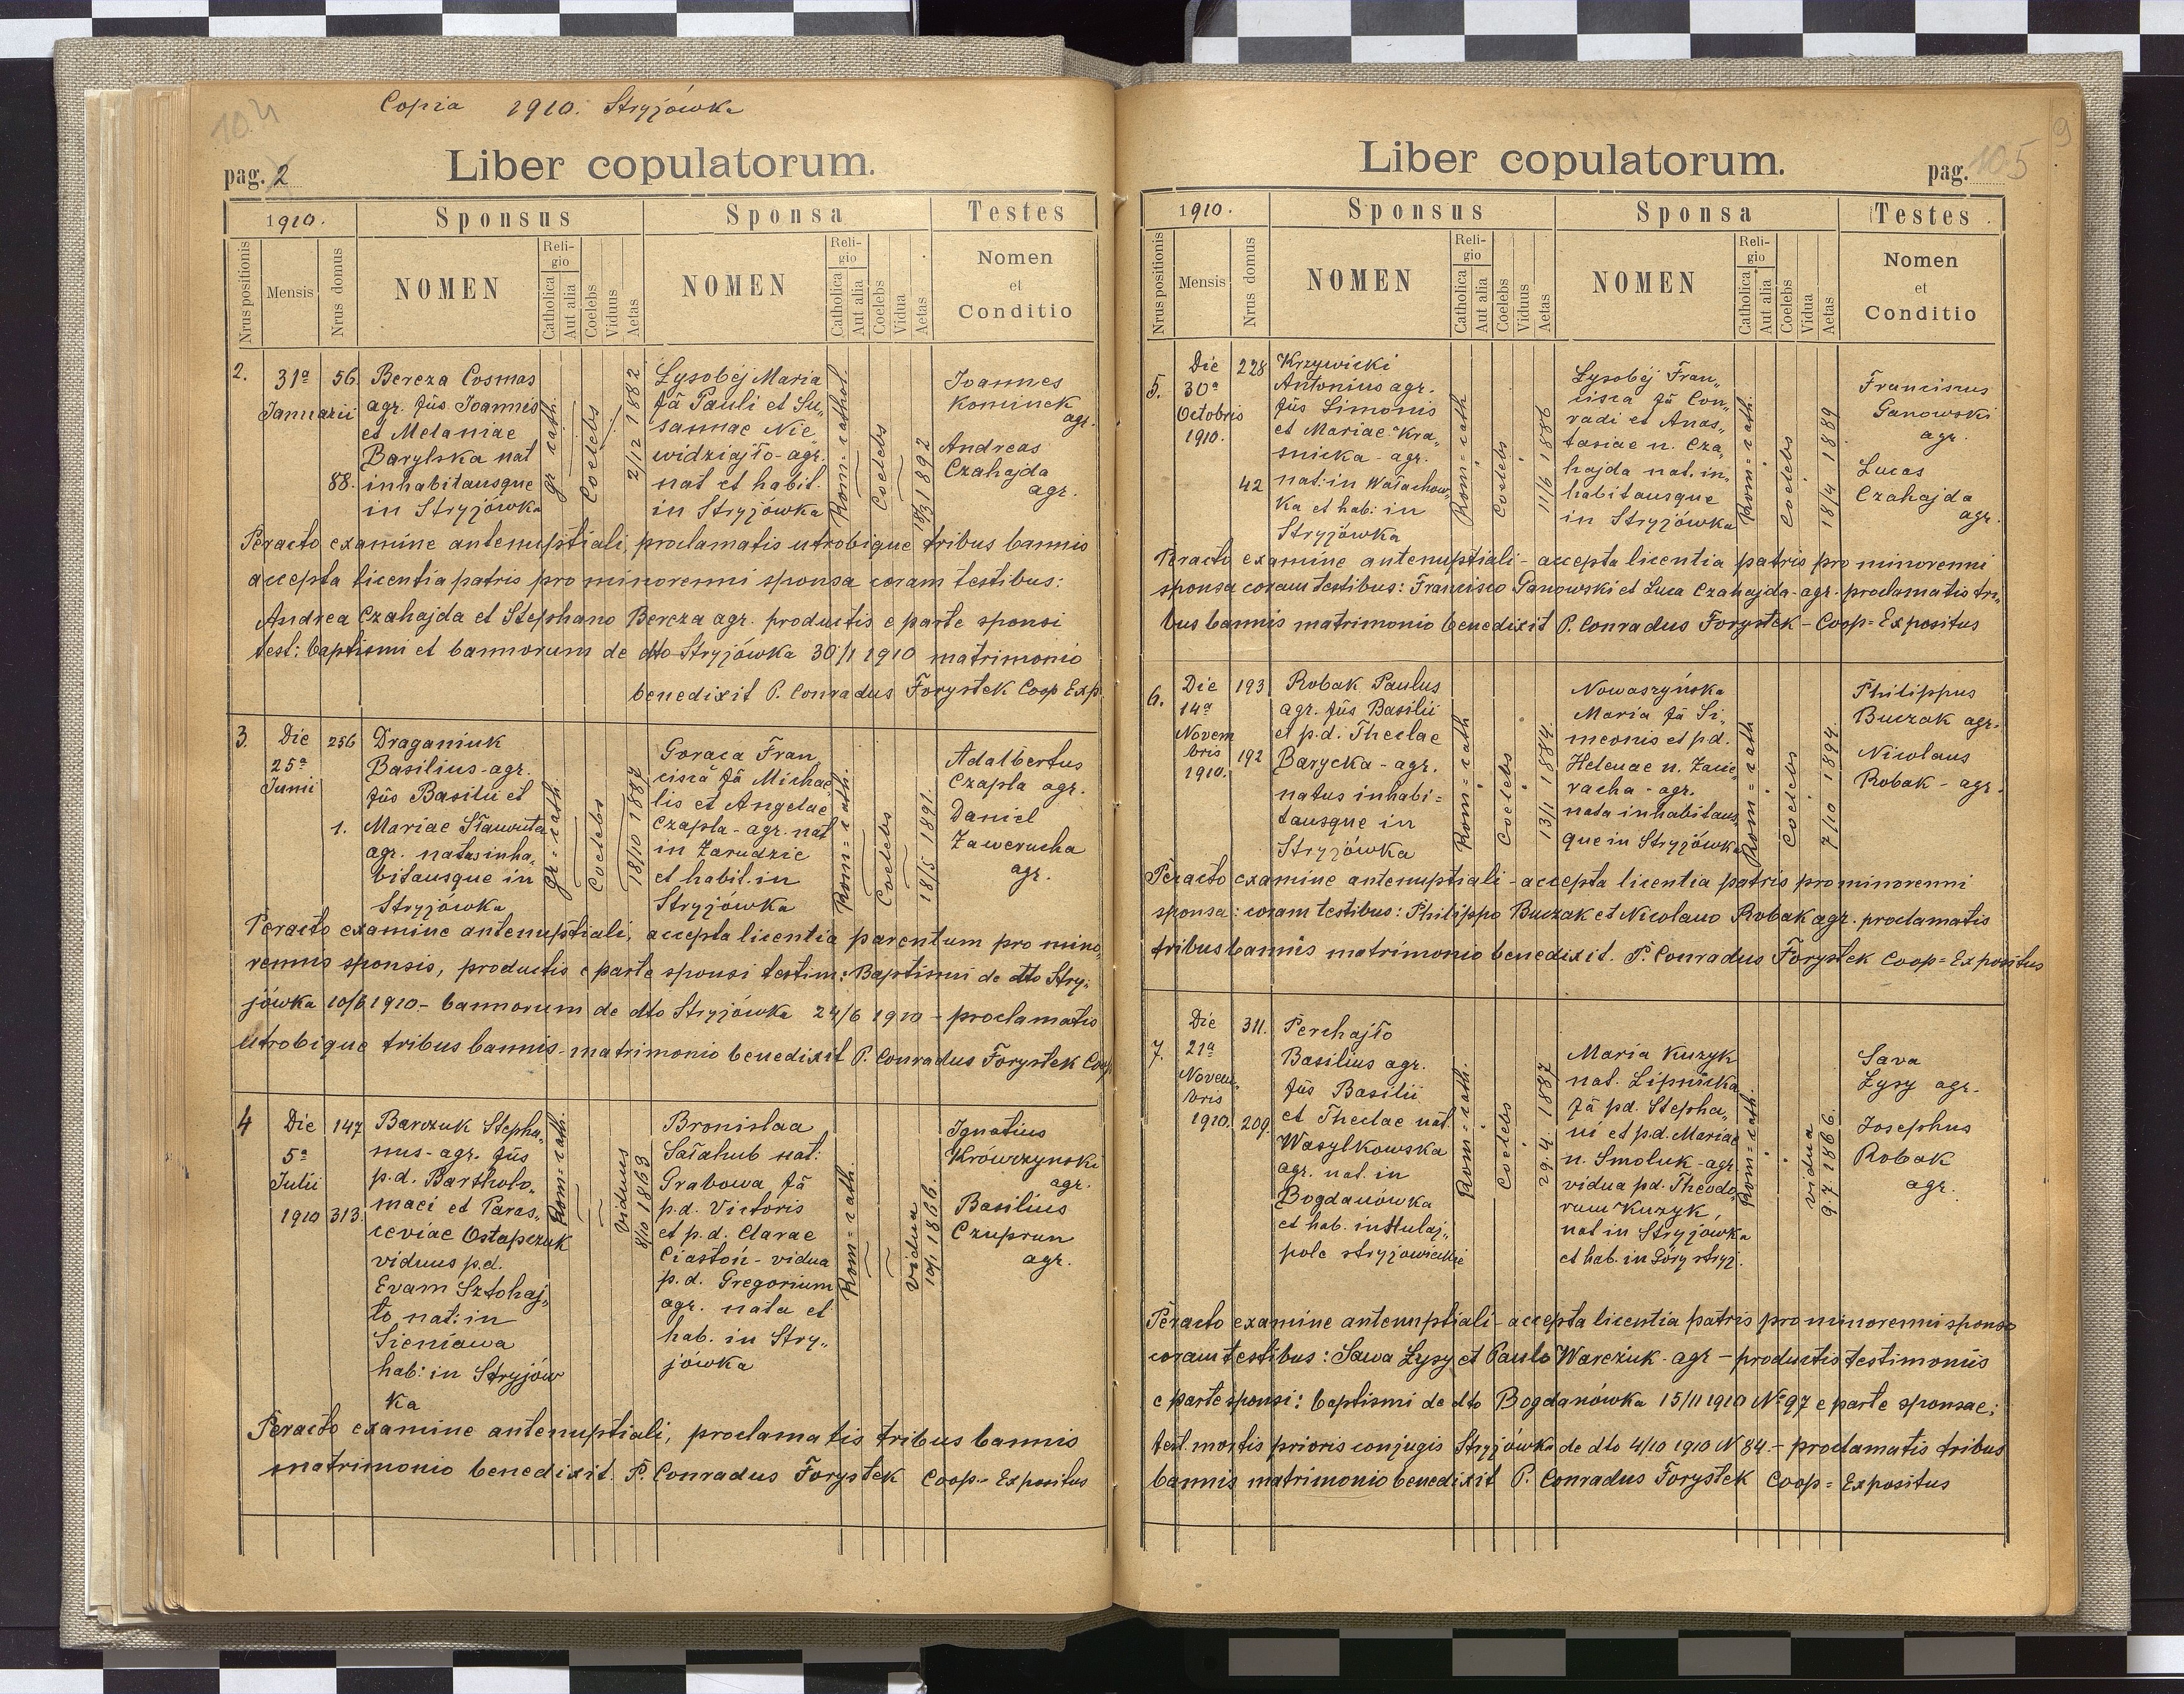 104
Copia 1910. Stryjówka
pag. 2
Liber copulatorum.
1910.
Sponsus
Sponsa
Testes
Nrus positionis
Mensis
Nrus domus
NOMEN
Religio
Catholica
Aut alia
Coelebs
Viduus
Aetas
NOMEN
Religio
Catholica
Aut alia
Coelebs
Vidua
Aetas
Nomen
et
Conditio
2.
31a
Januarii
56.
88.
Bereza Cosmas
agr. fűs Joannis
et Melaniae
Barylska nat
inhabitansque
in Stryjówka
gr cath.
Coelebs
2/12 1882
Lysobéj Maria
fă Pauli et Su„
sannae Nie„
widziajło - agr.
nat et habit.
in Stryjówka
Rom=cathol.
Coelebs
18/3 1892
Joannes
Kominek
agr.
Andreas
Czahajda
agr.
Peracto examine antenuptiali, proclamatis utrobique tribus bannis
accepta licentia patris pro minorenni sponsa coram testibus:
Andrea Czahajda et Stephano Bereza agr. productis e parte sponsi
test: baptismi et bannorum de dto Stryjówka 30/1 1910 matrimonio
benedixit P. Conradus Forystek Coop Exp.
3.
Die
25a
Junii
256
1.
Draganiuk
Basilius - agr.
fűs Basilii et
Mariae Sławuta
agr. natus inha„
bitansque in
Stryjówka
gr=cath.
Coelebs
18/10 1887
Goraca Fran„
cisca fă Michae„
lis et Angelae
Czapla - agr. nat
in Zarudzie
et habit. in
Stryjówka
Rom=cath.
Coelebs
18/5 1891.
Adalbertus
Czapla agr.
Daniel
Zawerucha
agr.
Peracto examine antenuptiali, accepta licentia parentum pro mino„
rennis sponsis, productis e parte sponsi testim: Baptismi de dto Stry„
jówka 10/6 1910 - bannorum de dto Stryjówka 24/6 1910 - proclamatis
utrobique tribus bannis - matrimonio benedixit P. Conradus Forystek Coop
4
Die
5a
Julii
1910
147
313.
Barczuk Stepha„
nus - agr. fűs
p.d. Bartholo„
maei et Paras„
ceviae Ostapczuk
viduus p.d.
Evam Sztohaj„
ło nat: in
Sieniawa
hab: in Stryjów
ka
Rom=cath.
Viduus
8/10 1863
Bronislaa
Sałahub nat:
Grabowa fă
p.d. Victoris
et p.d. Clarae
Ciastoń - vidua
p.d. Gregorium
agr. nata et
hab. in Stry„
jówka
Rom=cath.
Vidua
10/1 1866.
Ignatius
Krówczynski
agr.
Basilius
Czuprun
agr.
Peracto examine antenuptiali, proclamatis tribus bannis
matrimonio benedixit. P. Conradus Forystek Coop - Expositus
9
Liber copulatorum.
pag. 105
1910.
Sponsus
Sponsa
Testes
Nrus positionis
Mensis
Nrus domus
NOMEN
Religio
Catholica
Aut alia
Coelebs
Viduus
Aetas
NOMEN
Religio
Catholica
Aut alia
Coelebs
Vidua
Aetas
Nomen
et
Conditio
5.
Die
30a
Octobris
1910.
228
42
Krzywicki
Antonius agr.
fűs Simonis
et Mariae Kra„
snicka - agr.
nat: in Wałachow„
ka et hab: in
Stryjówka
Rom=cath
Coelebs
11/6 1886
Lysobéj Fran„
cisca fă Con„
radi et Anas„
tasiae n. Cza„
hajda nat. in„
habitansque
in Stryjówka
Rom=cath.
Coelebs
18/4 1889
Franciscus
Ganowski
agr.
Lucas
Czahajda
agr.
Peracto examine antenuptiali - accepta licentia patris pro minorenni
sponsa coram testibus: Francisco Ganowski et Luca Czahajda - agr. proclamatis tri„
bus bannis matrimonio benedixit P. Conradus Forystek - Coop=Expositus
6.
Die
14a
Novem
bris
1910.
193
192
Robak Paulus
agr. fűs Basilii
et p.d. Theclae
Barycka - agr.
natus inhabi=
tansque in
Stryjówka
Rom=cath
Coelebs
13/11 1884.
Nowaszyńska
Maria fă Si„
meonis et p.d.
Helenae n. Zawe„
rucha - agr.
nata inhabitans„
que in Stryjówka
Rom=cath
Coelebs
7/10 1894.
Philippus
Buczak agr.
Nicolaus
Robak - agr.
Peracto examine antenuptiali - accepta licentia patris pro minorenni
sponsa: coram testibus: Philippo Buczak et Nicolauo Robak agr. proclamatis
tribus bannis matrimonio benedixit. P. Conradus Forystek Coop=Expositus
7.
Die
21a
Novem„
bris
1910.
311.
209
Perchajło
Basilius agr.
fűs Basilii
et Theclae nat.
Wasylkowska
agr. nat. in
Bogdanówka
et hab. in Hulaj„
pole stryjowieckie
Rom=cath.
Coelebs
29.4. 1887
Maria Kuzyk
nat. Lipnicka
fă pd. Stepha„
ni et p.d. Mariae
n. Smoluk - agr
vidua pd. Theodo„
rum Kuzyk,
nat in Stryjówka
et hab. in Góry stryj.
Rom=cath.
vidua
9.7. 1886.
Sava
Łysy agr.
Josephus
Robak
agr.
Peracto examine antenuptiali - accepta licentia patris pro minorenni sponso
coram testibus: Sawa Łysy et Paulo Warczuk - agr - productis testimoniis
e parte sponsi: baptismi de dto Bogdanówka 15/11 1910 No 97 e parte sponsae:
test. mortis prioris conjugis Stryjówka de dto 4/10 1910 N 84 - proclamatis tribus
bannis matrimonio benedixit P. Conradus Forystek Coop=Expositus